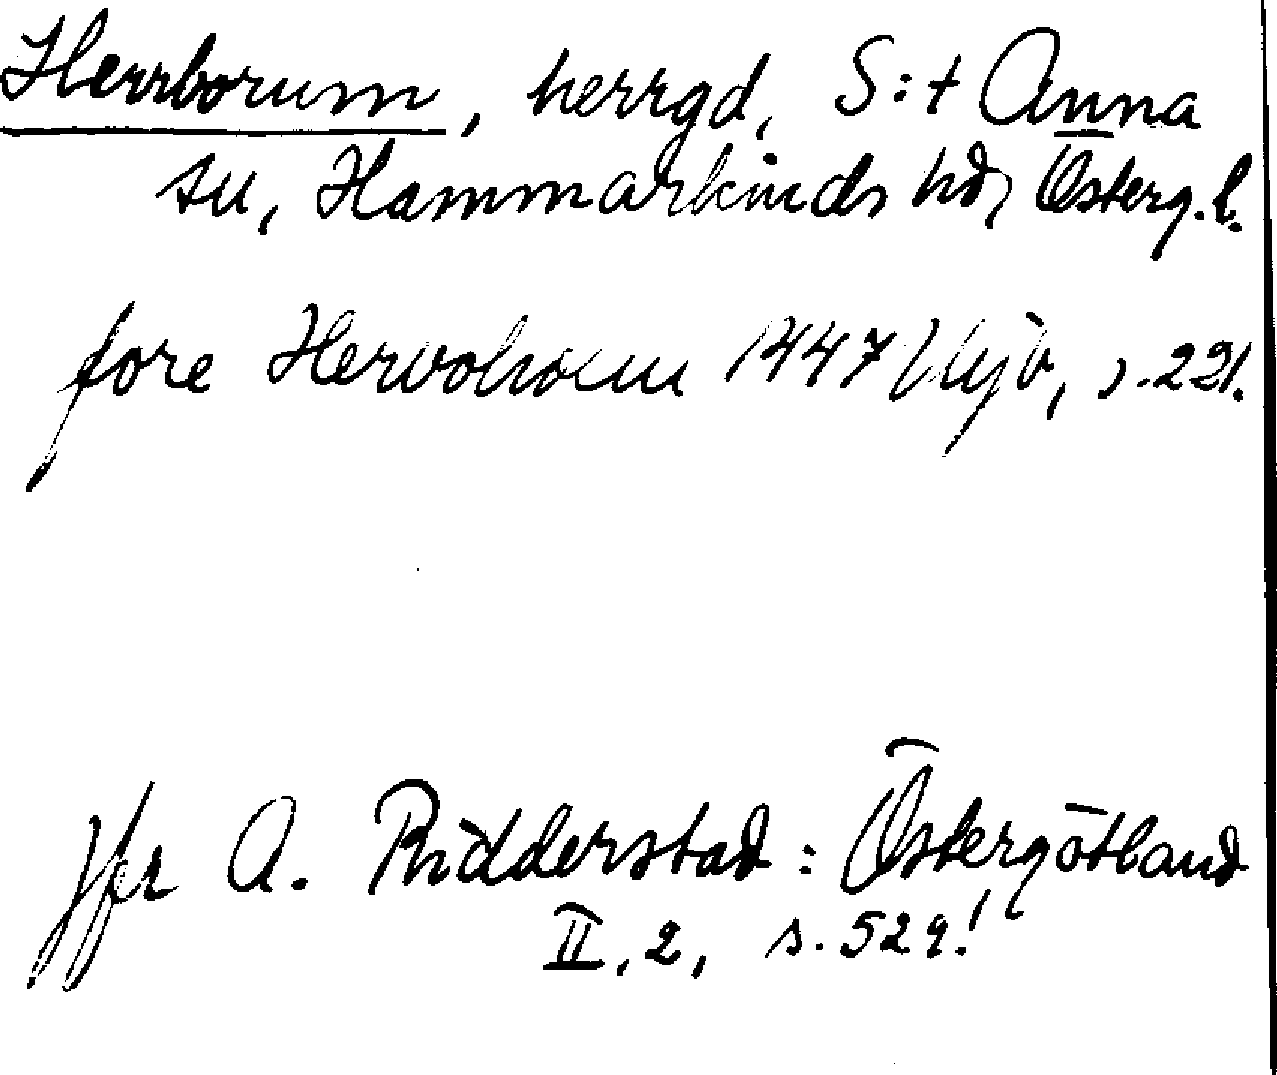 Herrborum, herrgd, S:t Anna
sn, Hammarkinds hd, Österg. l.
fore 1447 s. 221.
jfr A. Ridderstad: Östergötland
II, 2, s. 529!